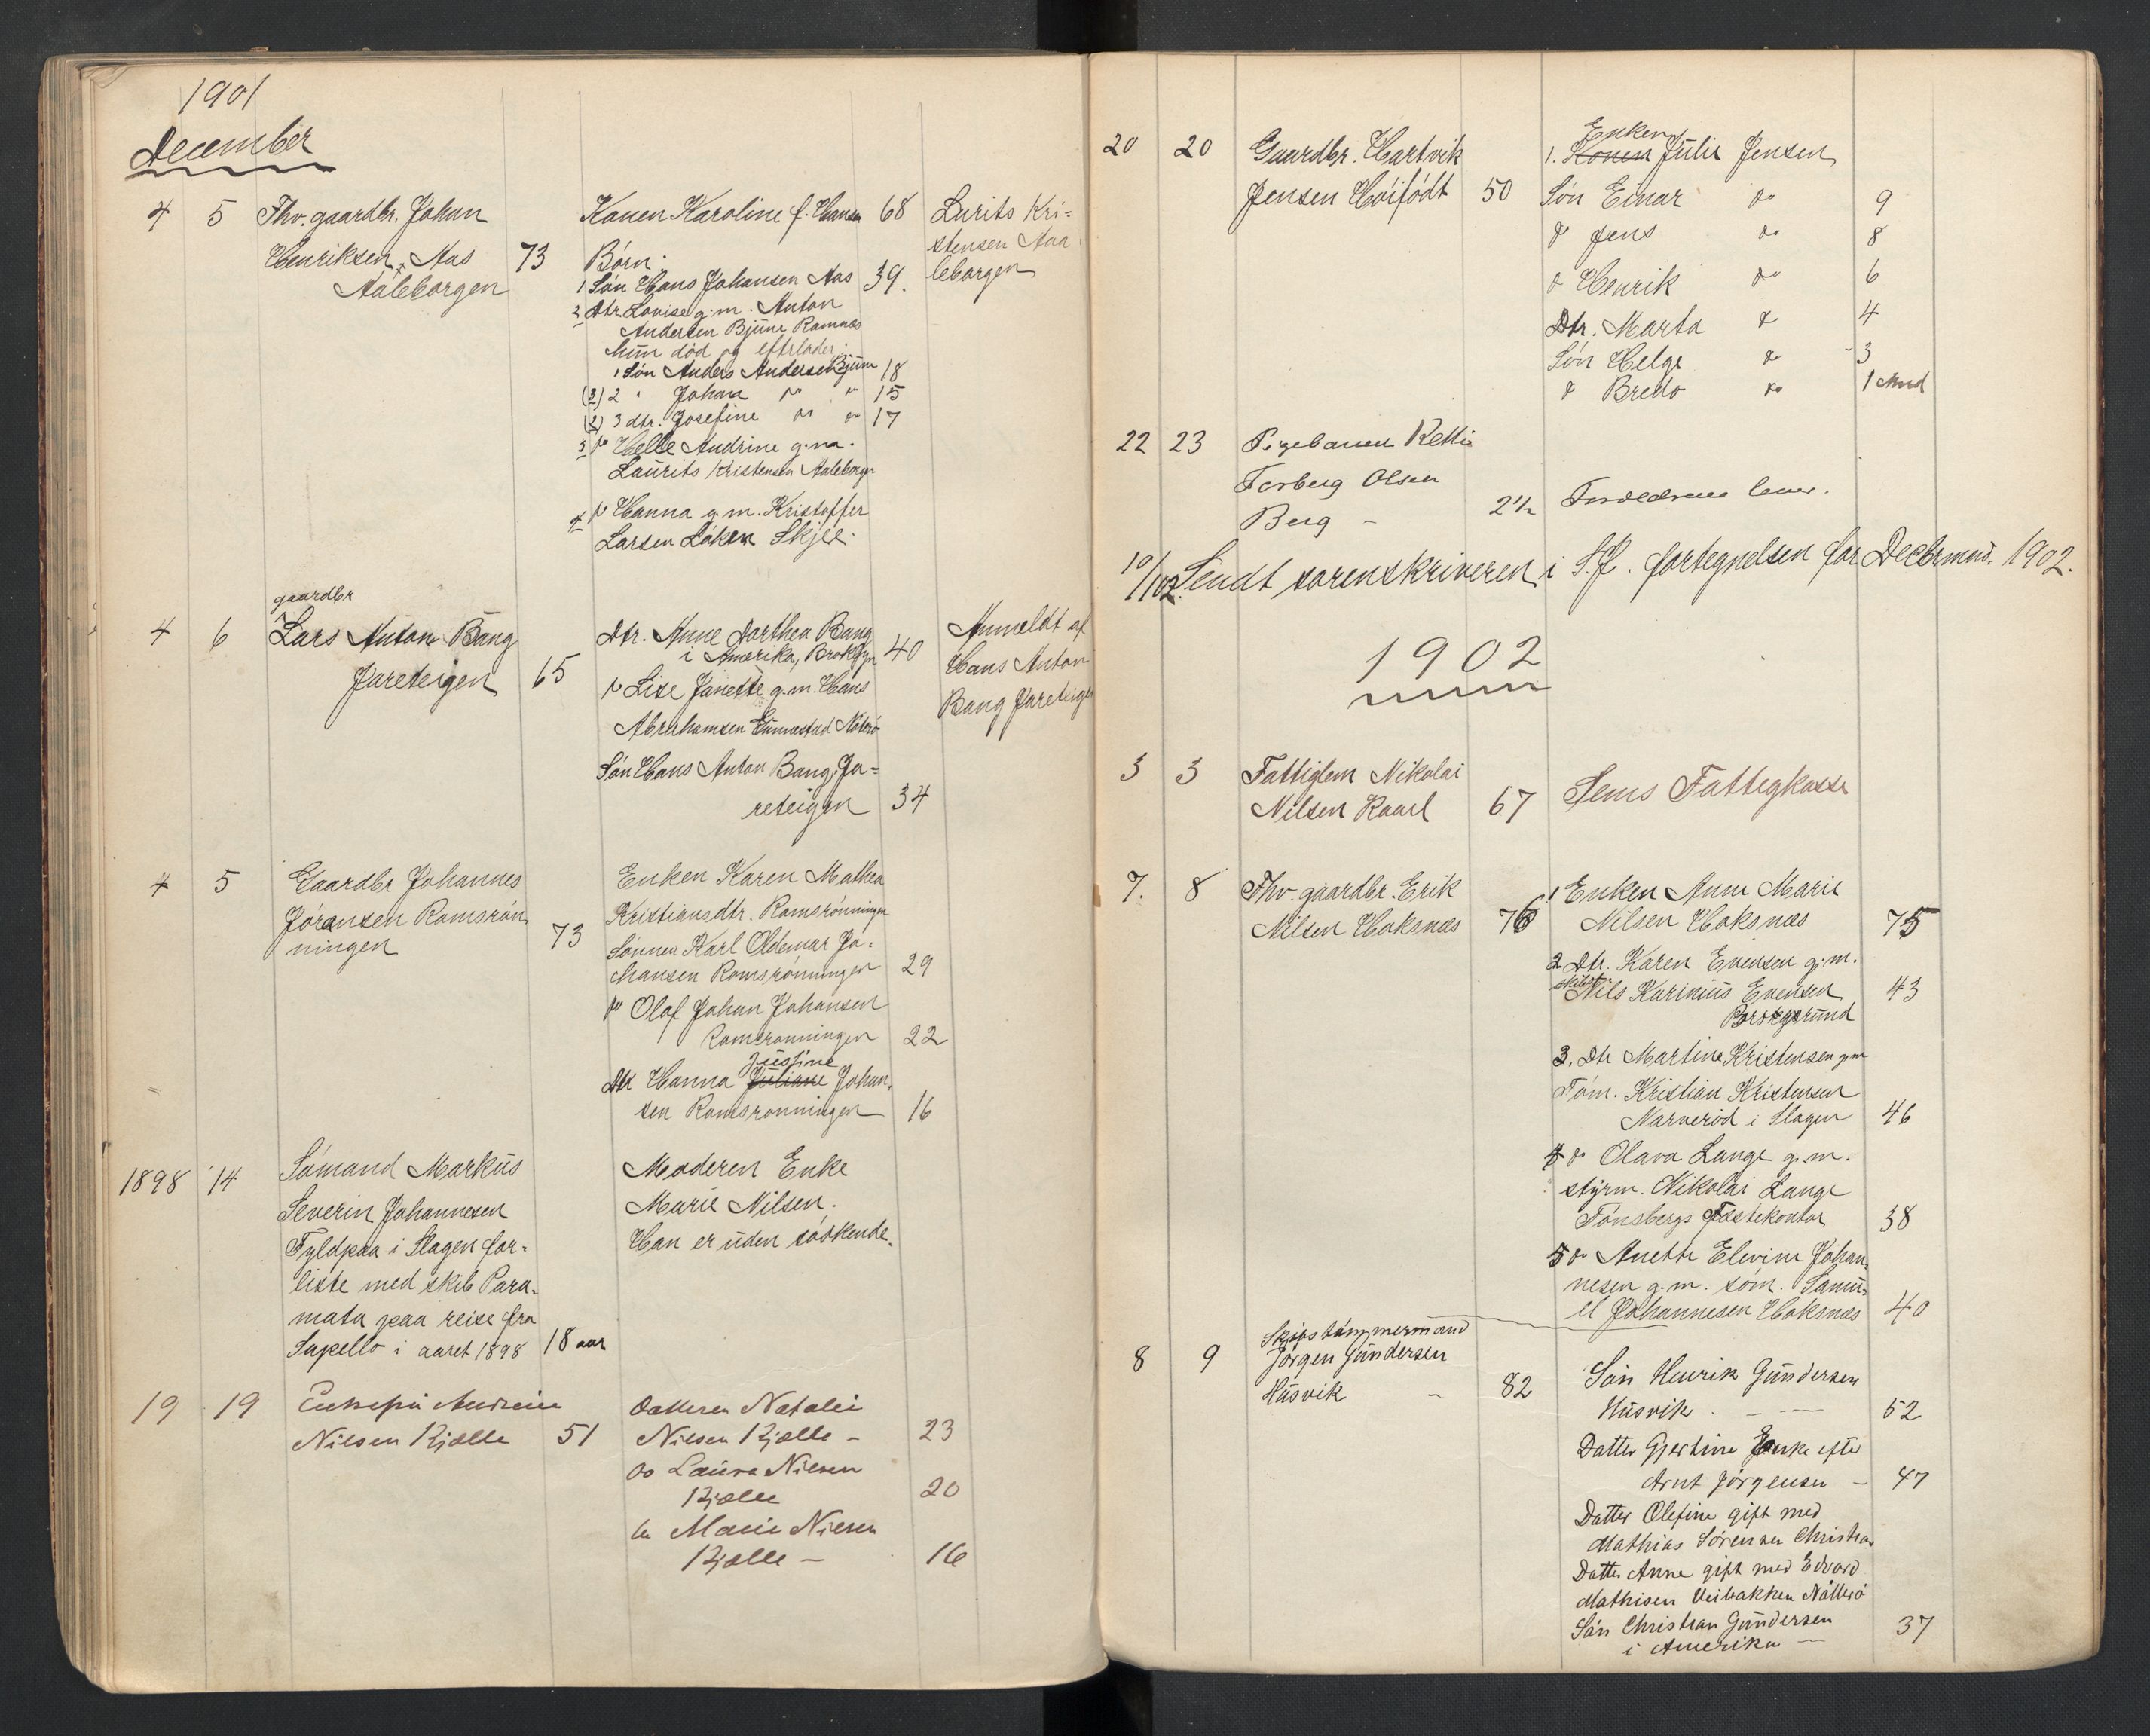 1901
December
4 5 Fhv. gaardbr. Johan
Henriksen Aas 73
Aaleborgen
Konen Karoline f. Hansen 68
Børn.
1 Søn Hans Johansen Aas 39.
2 Dtr. Lovise g. m. Anton
Andersen Bjune Ramnæs
hun død og efterlader:
1 Søn Anders Andersen Bjune 18
(2) 2 " Johan do do 15
(2) 3 dtr. Josefine do do 17
3 do Helle Andrine g. m.
Laurits Kristensen Aaleborgen
4 do Hanna g. m. Kristoffer
Larsen Løken Skjee.
Lurits Kri=
stensen Aa-
leborgen
4 6 gaardbr
Lars Anton Bang
Jareteigen 65
Dtr. Anne Dorthea Bang
i Amerika, Broklyn 40
do Lise Janette g. m. Hans
Abrahamsen Gunnestad Nøterø
Søn Hans Anton Bang, Ja=
reteigen 34
Anmeldt af
Hans Anton
Bang Jareteigen
4 5 Gaardbr Johannes
Jøransen Ramsrøn
ningen 73
Enken Karen Mathea
Kristiansdtr. Ramsrønningen
Sønnen Karl Oldemar Jo-
hansen Ramsrønningen 29
do Olaf Johan Johansen
Ramsrønningen 22
Justine
Dtr Hanna Juliane Johan-
sen Ramsrønningen 16
1898 14 Sømand Markus
Severin Johannesen
Fyldpaa i Slagen for-
liste med skib Para-
mata paa reise fra
Sapello i aaret 1898 18 aar
Moderen Enke
Marie Nilsen.
Han er uden søskende.
19 19 Andrine
Nilsen Kjælle 51
Datteren Natalie
Nilsen Kjælle - 23
do Laura Nilsen
Kjælle 20
do Marie Nilsen
Kjælle - 16
20 20 Gaardbr. Hartvik
Jensen Høifødt 50
Enken
1. Konen Julie Jensen
Søn Einar do 9
do Jens do 8
do Henrik do 6
Dtr. Marta do 4
Søn Helge do 3
do Bredo do 1 Mnd
22 23 Pigebarnet Kettie
Torberg Olsen
Berg - 2½
Forældrene lever.
10/1 02. Sendt sorenskriveren i S. J. fortegnelsen for Decbr mnd. 1902.
1902
3 3 Fattiglem Nikolai
Nilsen Raael 67
Sems Fattigkasse
7. 8 Fhv. gaardbr. Erik
Nilsen Hoksnæs 76
1 Enken Anne Marie
Nilsen Hoksnæs 75
2 Dtr. Karen Evensen g. m.
Nils Karinius Evensen 43
Borsgrund
3. Dtr Martine Kristensen gm
Tøm. Kristian Kristensen
Narverød i Slagen 46
4 do Olava Lange g. m.
styrm. Nikolai Lange
Tønsbergs Fæstekontor 38
5 do Anette Elevine Johan-
nesen g. m. søm. Samu-
el Johannesen Hoksnæs 40
8 9 Skibstømmermand
Jørgen Gundersen
Husvik - 82
Søn Henrik Gundersen
Husvik - 52
Datter Gjertine Enke efter
Arnt Jørgensen - 47
Datter Olefine gift med
Mathias Sørensen Christian
Datter Anne gift med Edvard
Mathisen Veibakken Nøtterø
Søn Christian Gundersen
i Amerika - 37